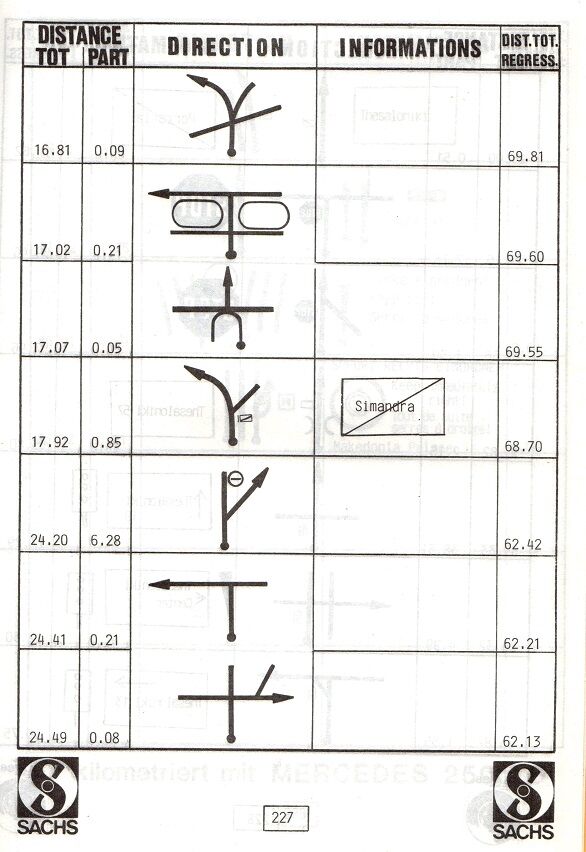 DISTANCE DIRECTION INFORMATIONS DIST.TOT.
TOT PART REGRESS.
16.81 0.09 69.81
17.02 0.21 69.60
17.07 0.05 69.55
Simandra
17.92 0.85 68.70
24.20 6.28 62.42
24.41 0.21 62.21
24.49 0.08 62.13
SACHS 227 SACHS